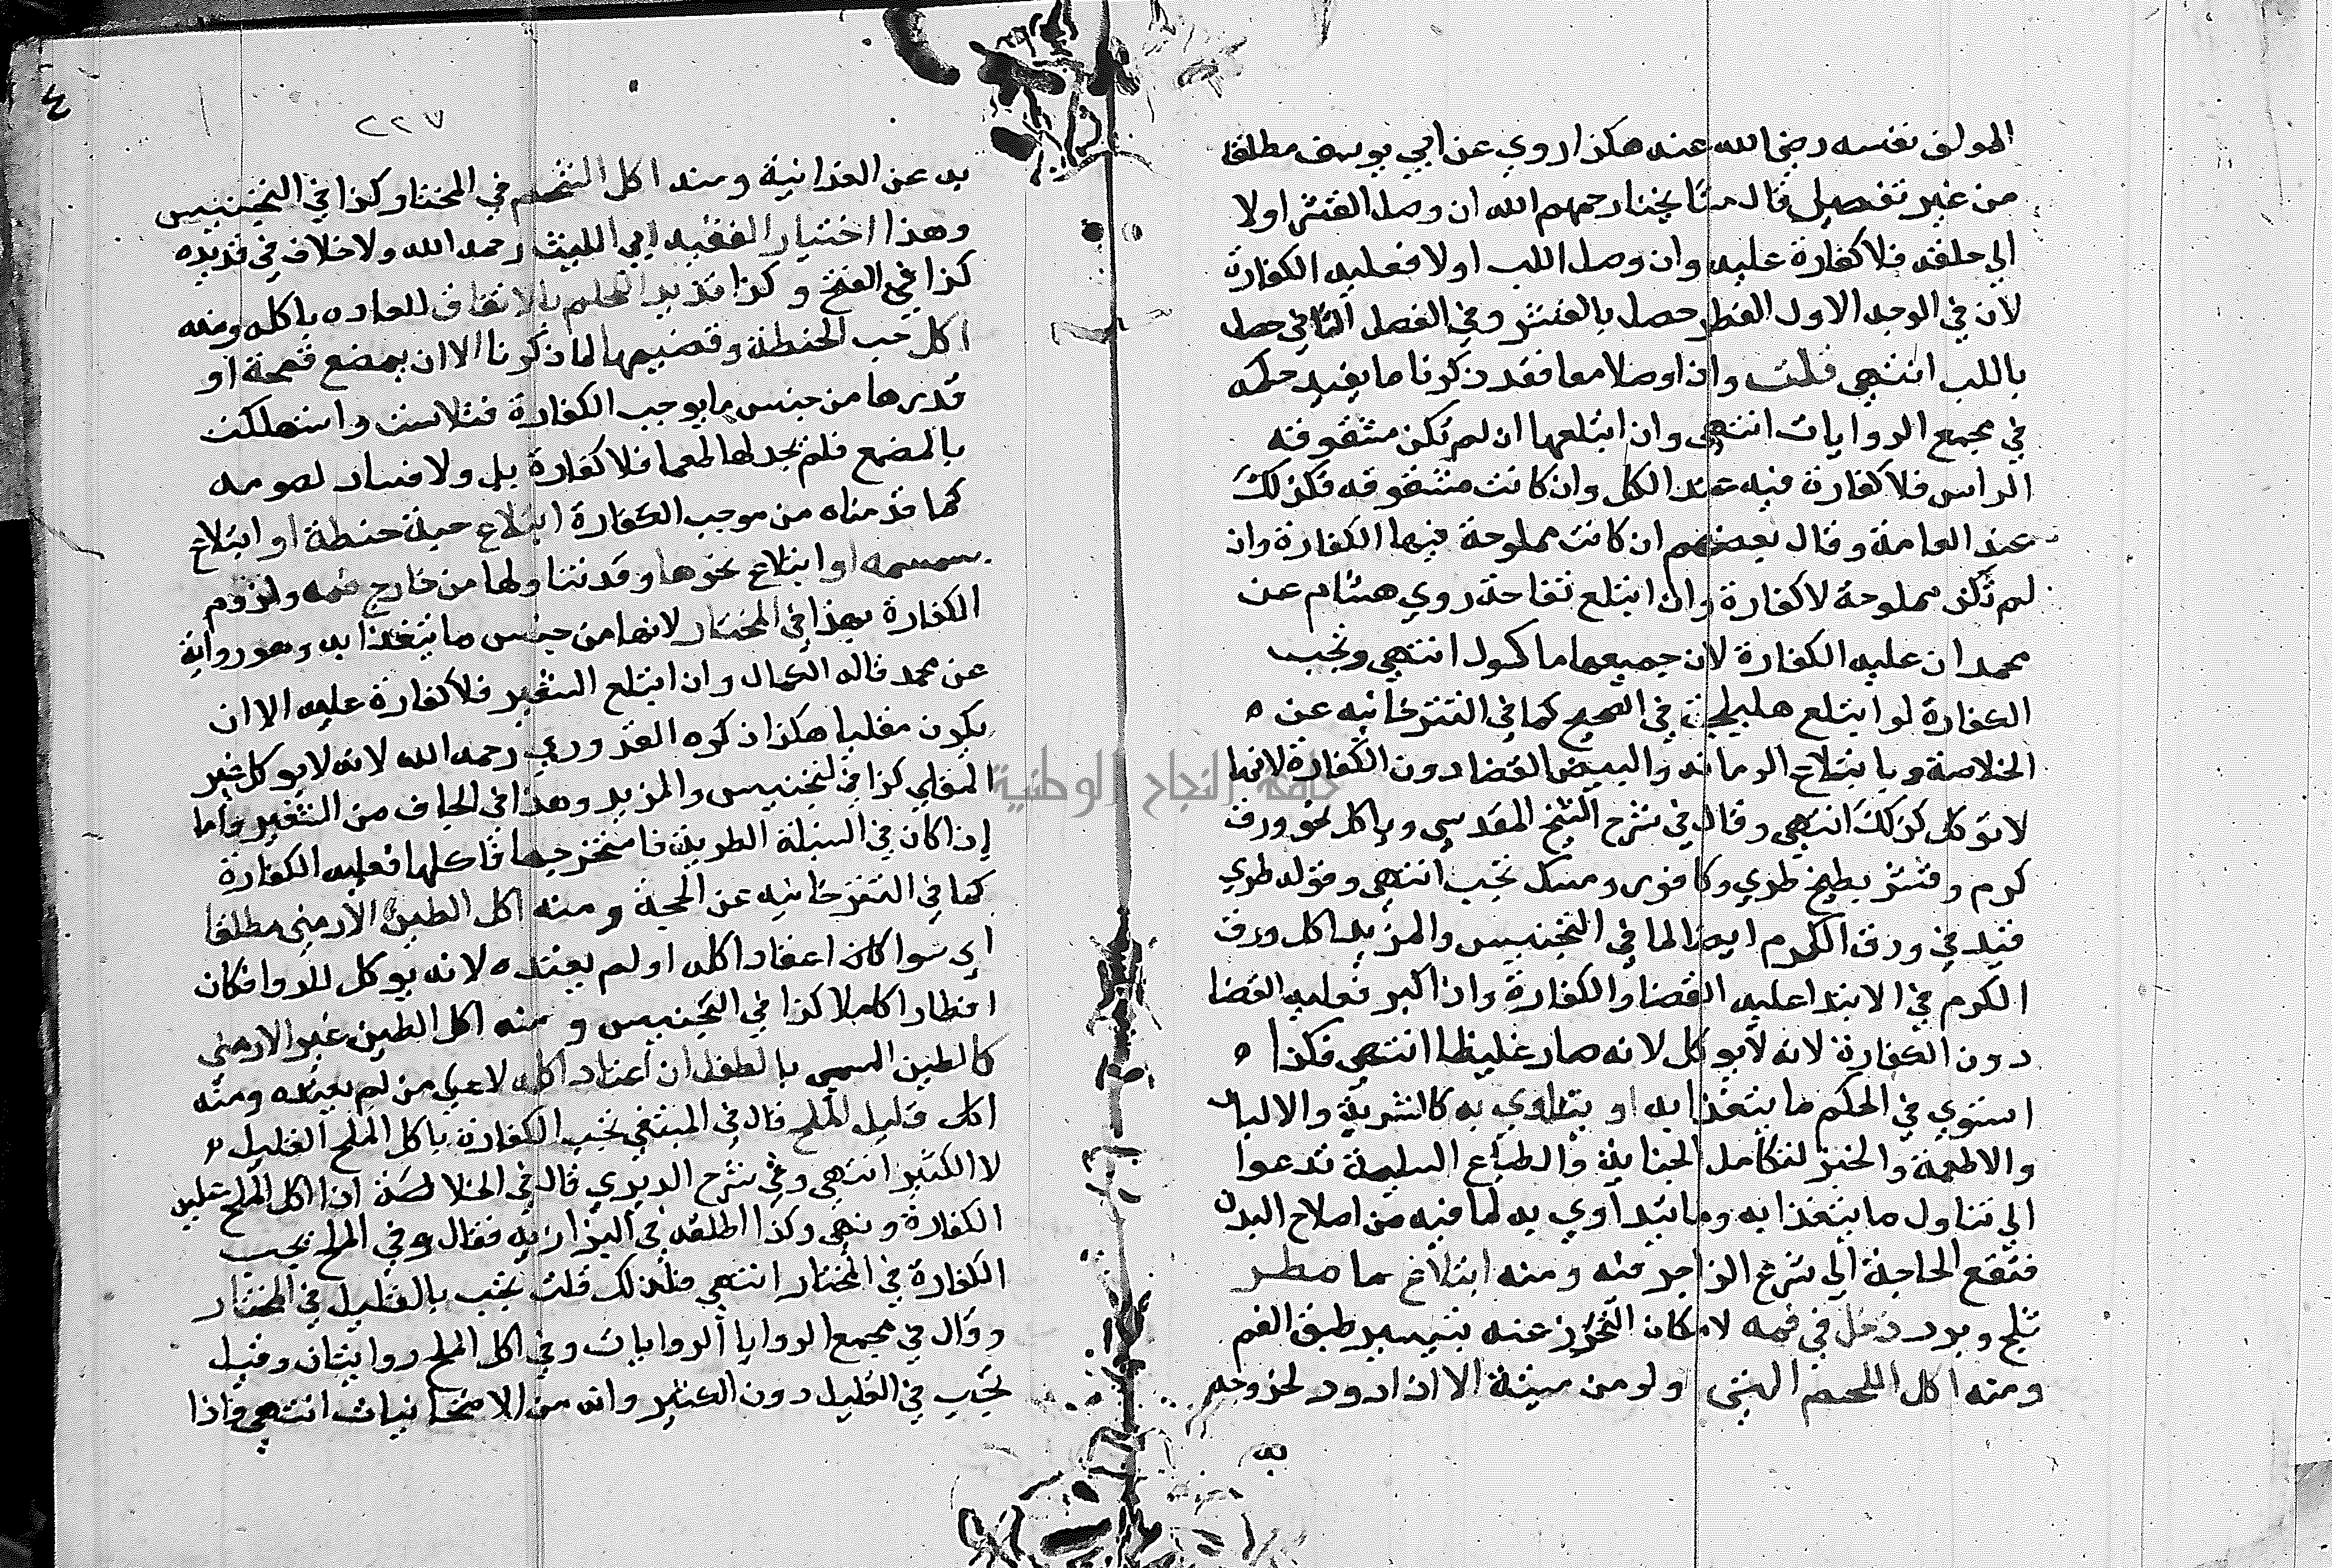 المولف نفسه رضي الله عنه هكذا روي عن ابي يوسف مطلقا
من غير تفصيل قال مشايخنا رحمهم الله ان وصل القشر اولا
الي حلقه فلا كفارة عليه وان وصل اللب اولا فعليه الكفارة
لان في الوجه الاول الفطر حصل بالقشر وفي الفصل الثاني حصل
باللب انتهي قلت وان اوصلا معا فقد ذكرنا ما يفيد حكمه
في مجمع الروايات انتهي وان ابتلعها ان لم تكن مشقوقه
الراس فلا كفارة فيه عند الكل وان كانت مشقوقه فكذلك
عند العامة وقال بعضهم ان كانت مملوحة فيها الكفارة وان
لم تكن مملوحة لا كفارة وان ابتلع تفاحة روي هشام عن
محمد ان عليه الكفارة لان جميعها ماكول انتهي وتجب
الكفارة لو ابتلع هليلجة في الصحيح كما في التترخانيه عن ه
الخلاصة وبابتلاع الرمانه والبيض القضا دون الكفارة لانها
لا توكل كذلك انتهي وقال في شرح الشيخ المقدسي وباكل نحو ورق
كرم وقشر بطيخ طري وكافور ومسك تجب انتهي وقوله طري
قيد في ورق الكرم ايضا لما في التجنيس والمزيد اكل ورق
الكرم في الابتدا عليه القضا والكفارة وان اكبر فعليه القضا
دون الكفارة لانه لا يوكل لانه صار غليظا انتهي فكذا ه
استوي في الحكم ما يتغذا به او يتداوي به كالاشربة والالبان
والاطعمة والخبز لتكامل الجناية والطباع السليمة تدعوا
الي تناول ما يتغذا به وما يتداوي به لما فيه من اصلاح البدن
فتقع الحاجة الي شرع الزاجر منه ومنه ابتلاع ما مطر
ثلج وبرد دخل في فمه لامكان التحرز عنه بتيسير طبق الفم
ومنه اكل اللحم الني ولو من ميتة الا ان ادود لخروجه
به
٤
٢٢٧
به عن الغذائية ومنه اكل الشحم في المختار وكذا في التجنيس
وهذا اختيار الفقيه ابي الليث رحمه الله ولا خلاف في قديده
كذا في الفتح وكذا قديد اللحم بالاتفاق للعاده باكله ومنه
اكل حب الحنطة وقضيمها لما ذكرنا الا ان يمضغ قمحة او
قدرها من جنس ما يوجب الكفارة فتلاشت واستهلكت
بالمضغ فلم يجد لها طعما فلا كفارة بل ولا فساد لصومه
كما قدمناه من موجب الكفارة ابتلاع حبة حنطة او ابتلاع
سمسمه او ابتلاع نحوها وقد تناولها من خارج فمه ولزوم
الكفارة بهذا في المختار لانها من جنس ما يتغذا به وهو رواية
عن محمد قاله الكمال وان ابتلع الشعير فلا كفارة عليه الا ان
يكون مقليا هكذا ذكره القدوري رحمه الله لانه لا يوكل غير
المقلي كذا في التجنيس والمزيد وهذا في الجاف من الشعير واما
اذا كان في السبلة الطرية فاستخرجها فاكلها فعليه الكفارة
كما في التترخانيه عن الحجة ومنه اكل الطين الارمني مطلقا
اي سوا كان اعتاد اكله او لم يعتده لانه يوكل للدوا فكان
افطارا كاملا كذا في التجنيس ومنه اكل الطين غير الارمني
كالطين المسمي بالطفل ان اعتاد اكله لا علي من لم يعتده ومنه
اكل قليل الملح قال في المبتغي تجب الكفارة باكل الملح القليل
لا الكثير انتهي وفي شرح الديري قال في الخلاصة اذا اكل الملح عليه
الكفارة ونهي وكذا اطلقه في البزازيه فقال وفي الملح تجب
الكفارة في المختار انتهي فلذلك قلت تجب بالقليل في المختار
وقال في مجمع الروايا الروايات وفي اكل الملح روايتان وقيل
تجب في القليل دون الكثير وانه من الامتحانيات انتهي واذا
جامعة النجاح الوطنية